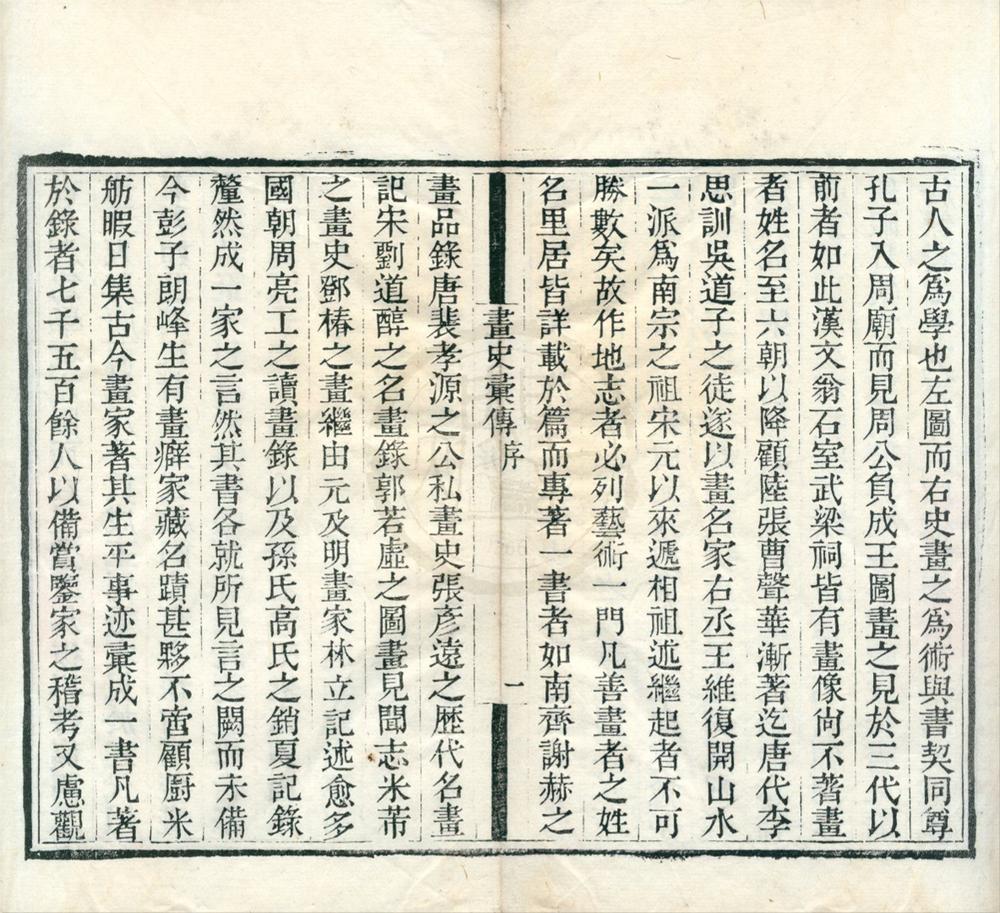 古人之爲學也左圖而右史畫之爲術與書契同尊
孔子入周廟而見周公負成王圖畫之見於三代以
前者如此漢文翁石室武梁祠皆有畫像尚不著畫
者姓名至六朝以降顧陸張曹聲華漸著迄唐代李
思訓吳道子之徒遂以畫名家右丞王維復開山水
一派爲南宗之祖宋元以來遞相祖述繼起者不可
勝數矣故作地志者必列藝術一門凡善畫者之姓
名里居皆詳載於篇而專著一書者如南齊謝赫之
畫史彙傳
序
一
畫品錄唐裴孝源之公私畫史張彥遠之歷代名畫
記宋劉道醇之名畫錄郭若虛之圖畫見聞志米芾
之畫史鄧椿之畫繼由元及明畫家林立記述愈多
國朝周亮工之讀畫錄以及孫氏高氏之銷夏記錄
釐然成一家之言然其書各就所見言之闕而未備
今彭子朗峰生有畫癖家藏名蹟甚夥不啻顧厨米
舫暇日集古今畫家著其生平事迹彙成一書凡著
於錄者七千五百餘人以備賞鑒家之稽考又慮觀